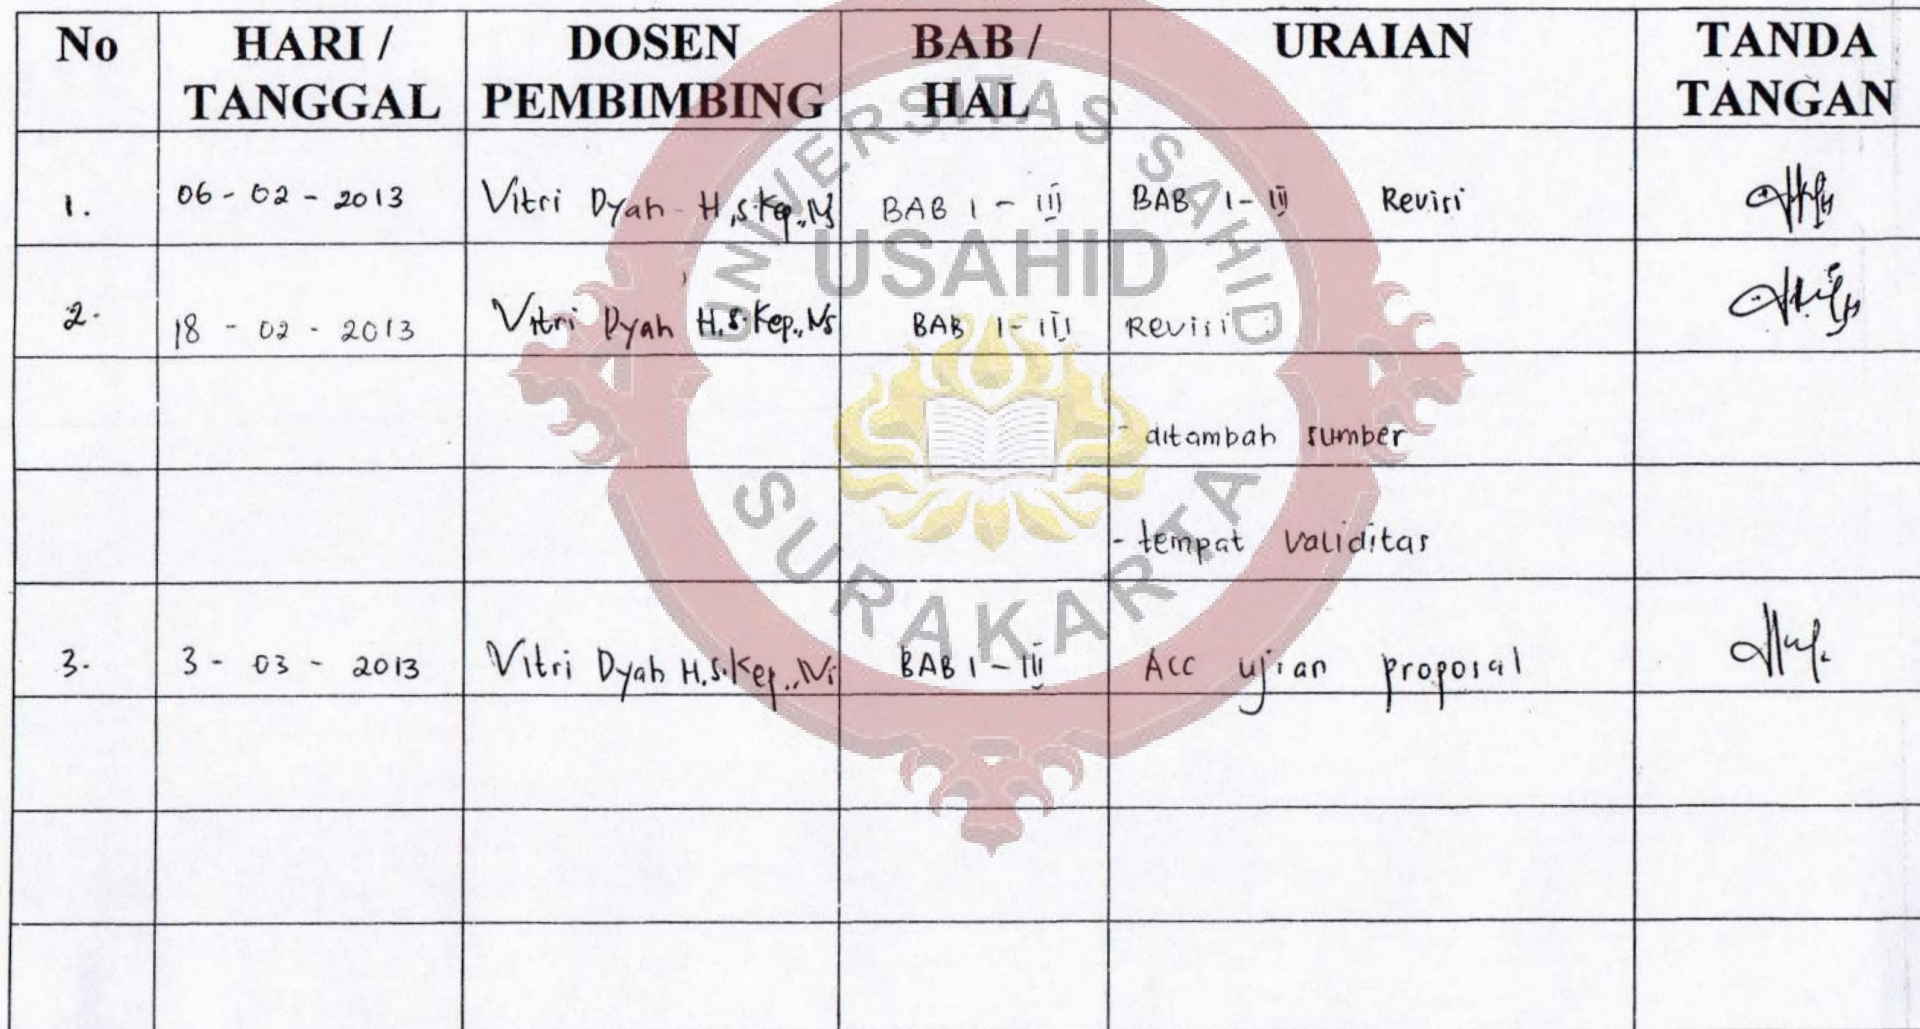 No HARI / TANGGAL DOSEN PEMBIMBING BAB / HAL URAIAN TANDA TANGAN
1. 06 - 02 - 2013 Vitri Dyah H,S.Kep.,Ns BAB I - III BAB I - III Revisi
2. 18 - 02 - 2013 Vitri Dyah H.S.Kep.,Ns BAB I - III Revisi :
- ditambah sumber
- tempat validitas
3. 3 - 03 - 2013 Vitri Dyah H.S.Kep.,Ns BAB I - III Acc ujian proposal
UNIVERSITAS SAHID
USAHID
SURAKARTA